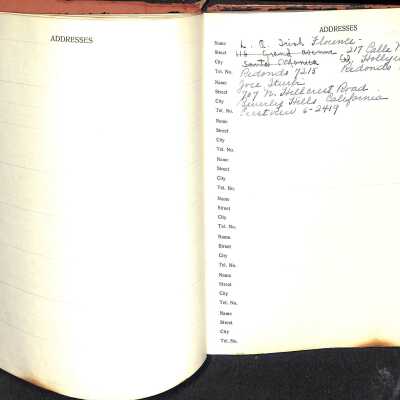 ADDRESSES
ADDRESSES
Name L. A. Trish Florence -
Street 114 Grand avenue 217 Calle
City Santa Monica Hollyw
Tel. No. Redondo 7215 Redondo
Name Jose Sturb
Street 707 N. Hillcrest Road.
City Beverly Hills, California
Tel. No. Crestview 6-2419
Name
Street
City
Tel. No.
Name
Street
City
Tel. No.
Name
Street
City
Tel. No.
Name
Street
City
Tel. No.
Name
Street
City
Tel. No.
Name
Street
City
Tel. No.